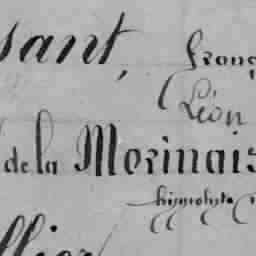 sant, Franç
Léon
de la Morinais
hyppolyte
llier